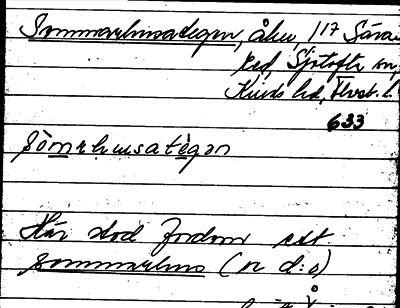 Sommarhusategen, åker, 1/17 Sära
red, Sjötofta sn,
Kinds hd, Älvsb. l.
633
sòmərhusatègən
Här stod fordom ett
sommarhus (nr d:o)